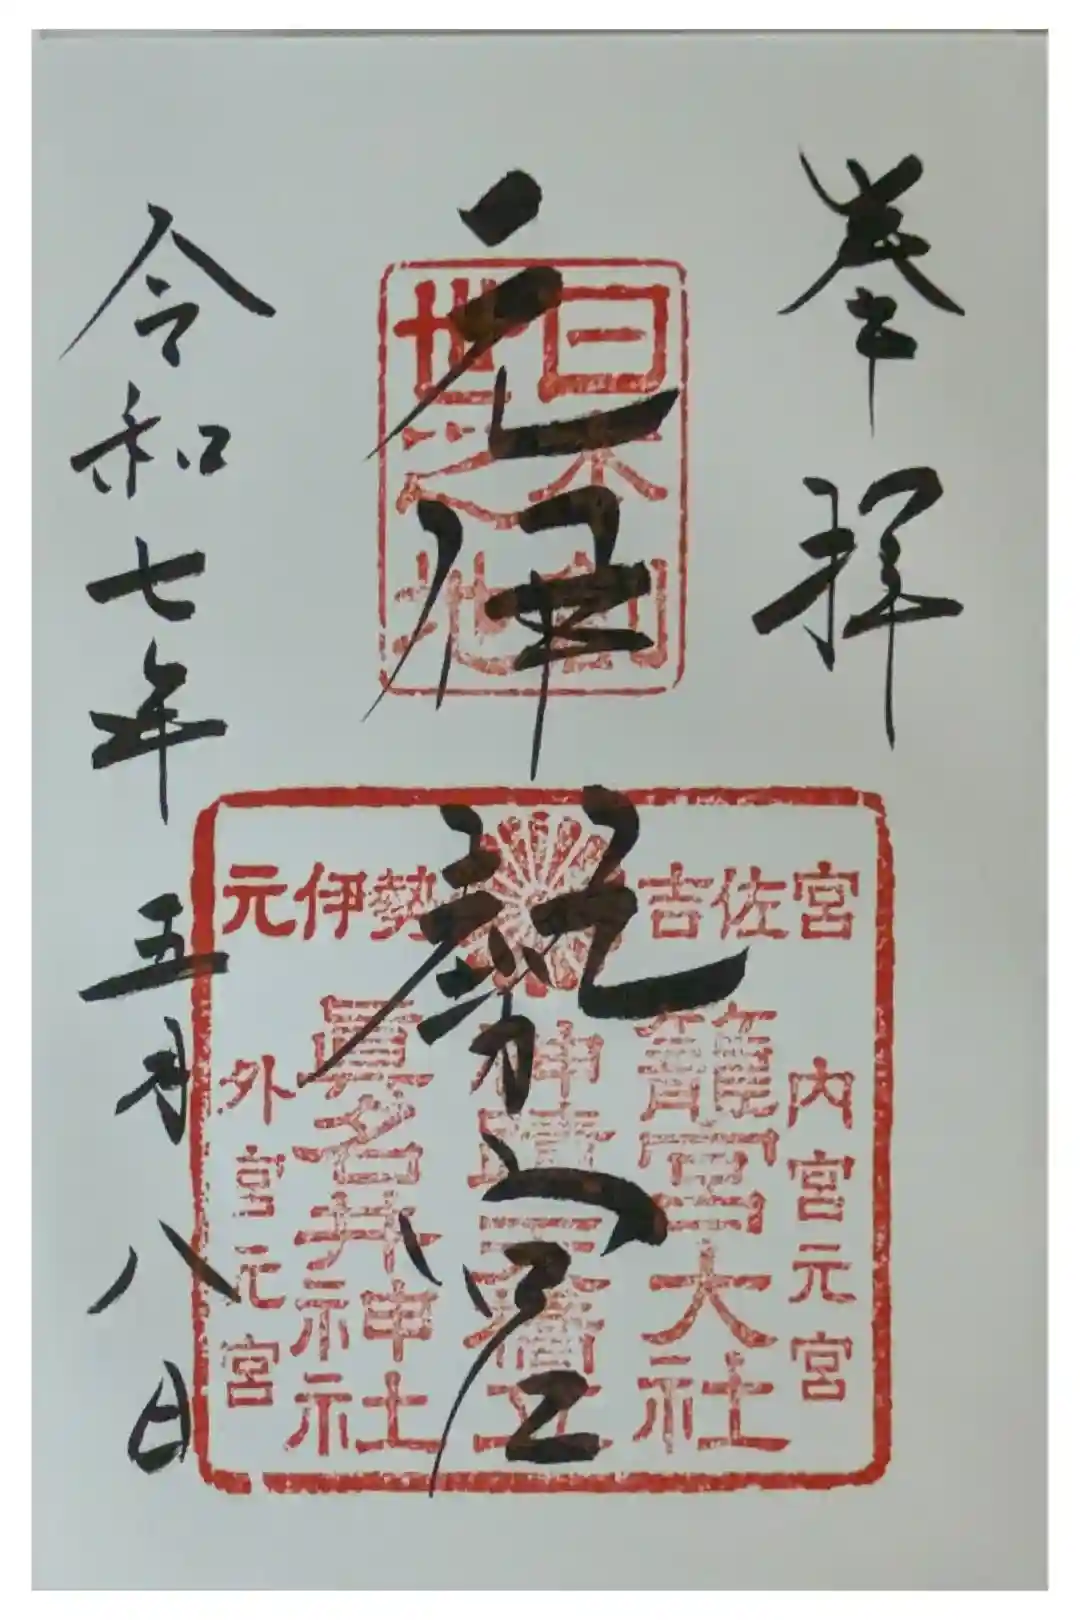 奉拝
元伊勢宮
令和七年五月八日
日本
世之地
元伊勢 吉佐宮
内宮元宮
籠宮大社
神蹟天橋立
眞名井神社
外宮元宮